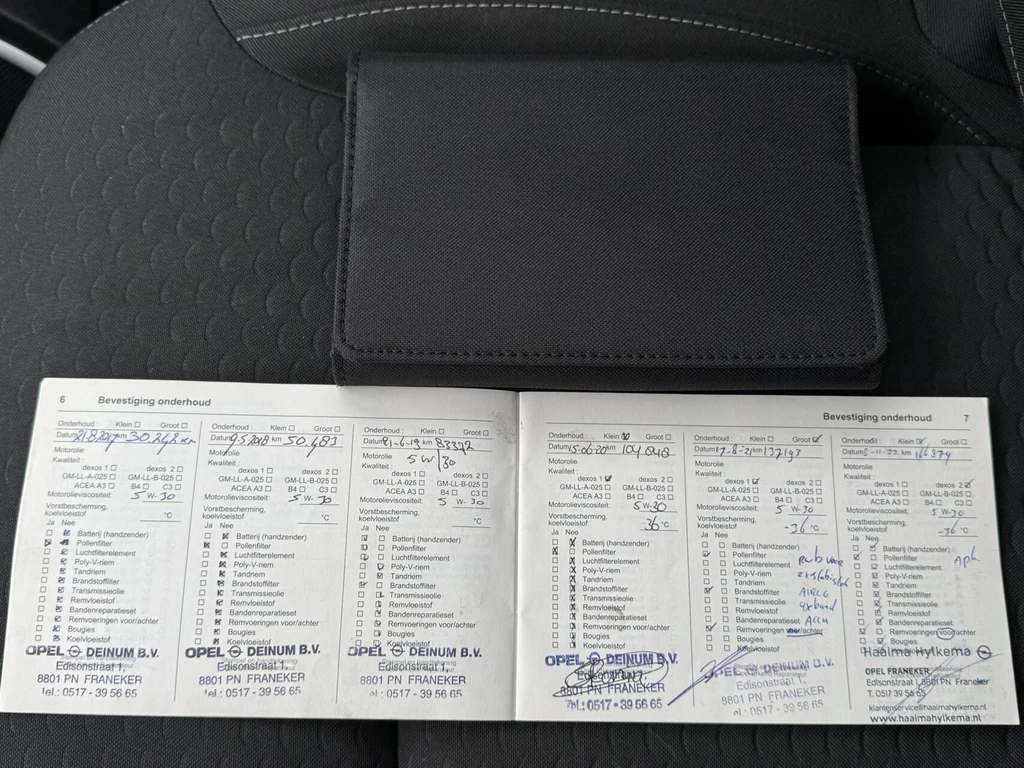 6 Bevestiging onderhoud
Onderhoud: Klein Groot
Datum 21-8-2017 km 30.242 km
Motorolie
Kwaliteit:
dexos 1 dexos 2
GM-LL-A-025 GM-LL-B-025
ACEA A3 B4 C3
Motorolieviscositeit: 5 W-30
Vorstbescherming,
koelvloeistof °C
Ja Nee
Batterij (handzender)
Pollenfilter
Luchtfilterelement
Poly-V-riem
Tandriem
Brandstoffilter
Transmissieolie
Remvloeistof
Bandenreparatieset
Remvoeringen voor/achter
Bougies
Koelvloeistof
OPEL DEINUM B.V.
Edisonstraat 1,
8801 PN FRANEKER
tel.: 0517 - 39 56 65
Onderhoud: Klein Groot
Datum 9-5-2018 km 50.483
Motorolie
Kwaliteit:
dexos 1 dexos 2
GM-LL-A-025 GM-LL-B-025
ACEA A3 B4 C3
Motorolieviscositeit: 5 W-30
Vorstbescherming,
koelvloeistof °C
Ja Nee
Batterij (handzender)
Pollenfilter
Luchtfilterelement
Poly-V-riem
Tandriem
Brandstoffilter
Transmissieolie
Remvloeistof
Bandenreparatieset
Remvoeringen voor/achter
Bougies
Koelvloeistof
OPEL DEINUM B.V.
Edisonstraat 1,
8801 PN FRANEKER
tel.: 0517 - 39 56 65
Onderhoud: Klein Groot
Datum 21-6-19 km 83392
Motorolie 5W/30
Kwaliteit:
dexos 1 dexos 2
GM-LL-A-025 GM-LL-B-025
ACEA A3 B4 C3
Motorolieviscositeit: 5 W-30
Vorstbescherming,
koelvloeistof °C
Ja Nee
Batterij (handzender)
Pollenfilter
Luchtfilterelement
Poly-V-riem
Tandriem
Brandstoffilter
Transmissieolie
Remvloeistof
Bandenreparatieset
Remvoeringen voor/achter
Bougies
Koelvloeistof
OPEL DEINUM B.V.
Edisonstraat 1,
8801 PN FRANEKER
tel.: 0517 - 39 56 65
Bevestiging onderhoud 7
Onderhoud: Klein Groot
Datum 15-06-20 km 104048
Motorolie
Kwaliteit:
dexos 1 dexos 2
GM-LL-A-025 GM-LL-B-025
ACEA A3 B4 C3
Motorolieviscositeit: 5 W-30
Vorstbescherming,
koelvloeistof -36 °C
Ja Nee
Batterij (handzender)
Pollenfilter
Luchtfilterelement
Poly-V-riem
Tandriem
Brandstoffilter
Transmissieolie
Remvloeistof
Bandenreparatieset
Remvoeringen voor/achter
Bougies
Koelvloeistof
OPEL DEINUM B.V.
Edisonstraat 1,
8801 PN FRANEKER
tel.: 0517 - 39 56 65
Onderhoud: Klein Groot
Datum 17-8-21 km 137193
Motorolie
Kwaliteit:
dexos 1 dexos 2
GM-LL-A-025 GM-LL-B-025
ACEA A3 B4 C3
Motorolieviscositeit: 5 W-30
Vorstbescherming,
koelvloeistof -36 °C
Ja Nee
Batterij (handzender)
Pollenfilter
Luchtfilterelement
Poly-V-riem
Tandriem
Brandstoffilter AIRCO
Transmissieolie
Remvloeistof 4x band
Bandenreparatieset Accu
Remvoeringen voor/achter
Bougies
Koelvloeistof
OPEL DEINUM B.V.
Edisonstraat 1,
8801 PN FRANEKER
tel.: 0517 - 39 56 65
Onderhoud: Klein Groot
Datum 2-11-22 km 166874
Motorolie
Kwaliteit:
dexos 1 dexos 2
GM-LL-A-025 GM-LL-B-025
ACEA A3 B4 C3
Motorolieviscositeit: 5 W-30
Vorstbescherming,
koelvloeistof -36 °C
Ja Nee
Batterij (handzender)
Pollenfilter Apk
Luchtfilterelement
Poly-V-riem
Tandriem
Brandstoffilter
Transmissieolie
Remvloeistof
Bandenreparatieset
Remvoeringen voor/achter
Bougies
Haaima Hylkema
OPEL FRANEKER
Edisonstraat 1, 8801 PN Franeker
T. 0517 39 56 65
klantenservice@haaimahylkema.nl
www.haaimahylkema.nl